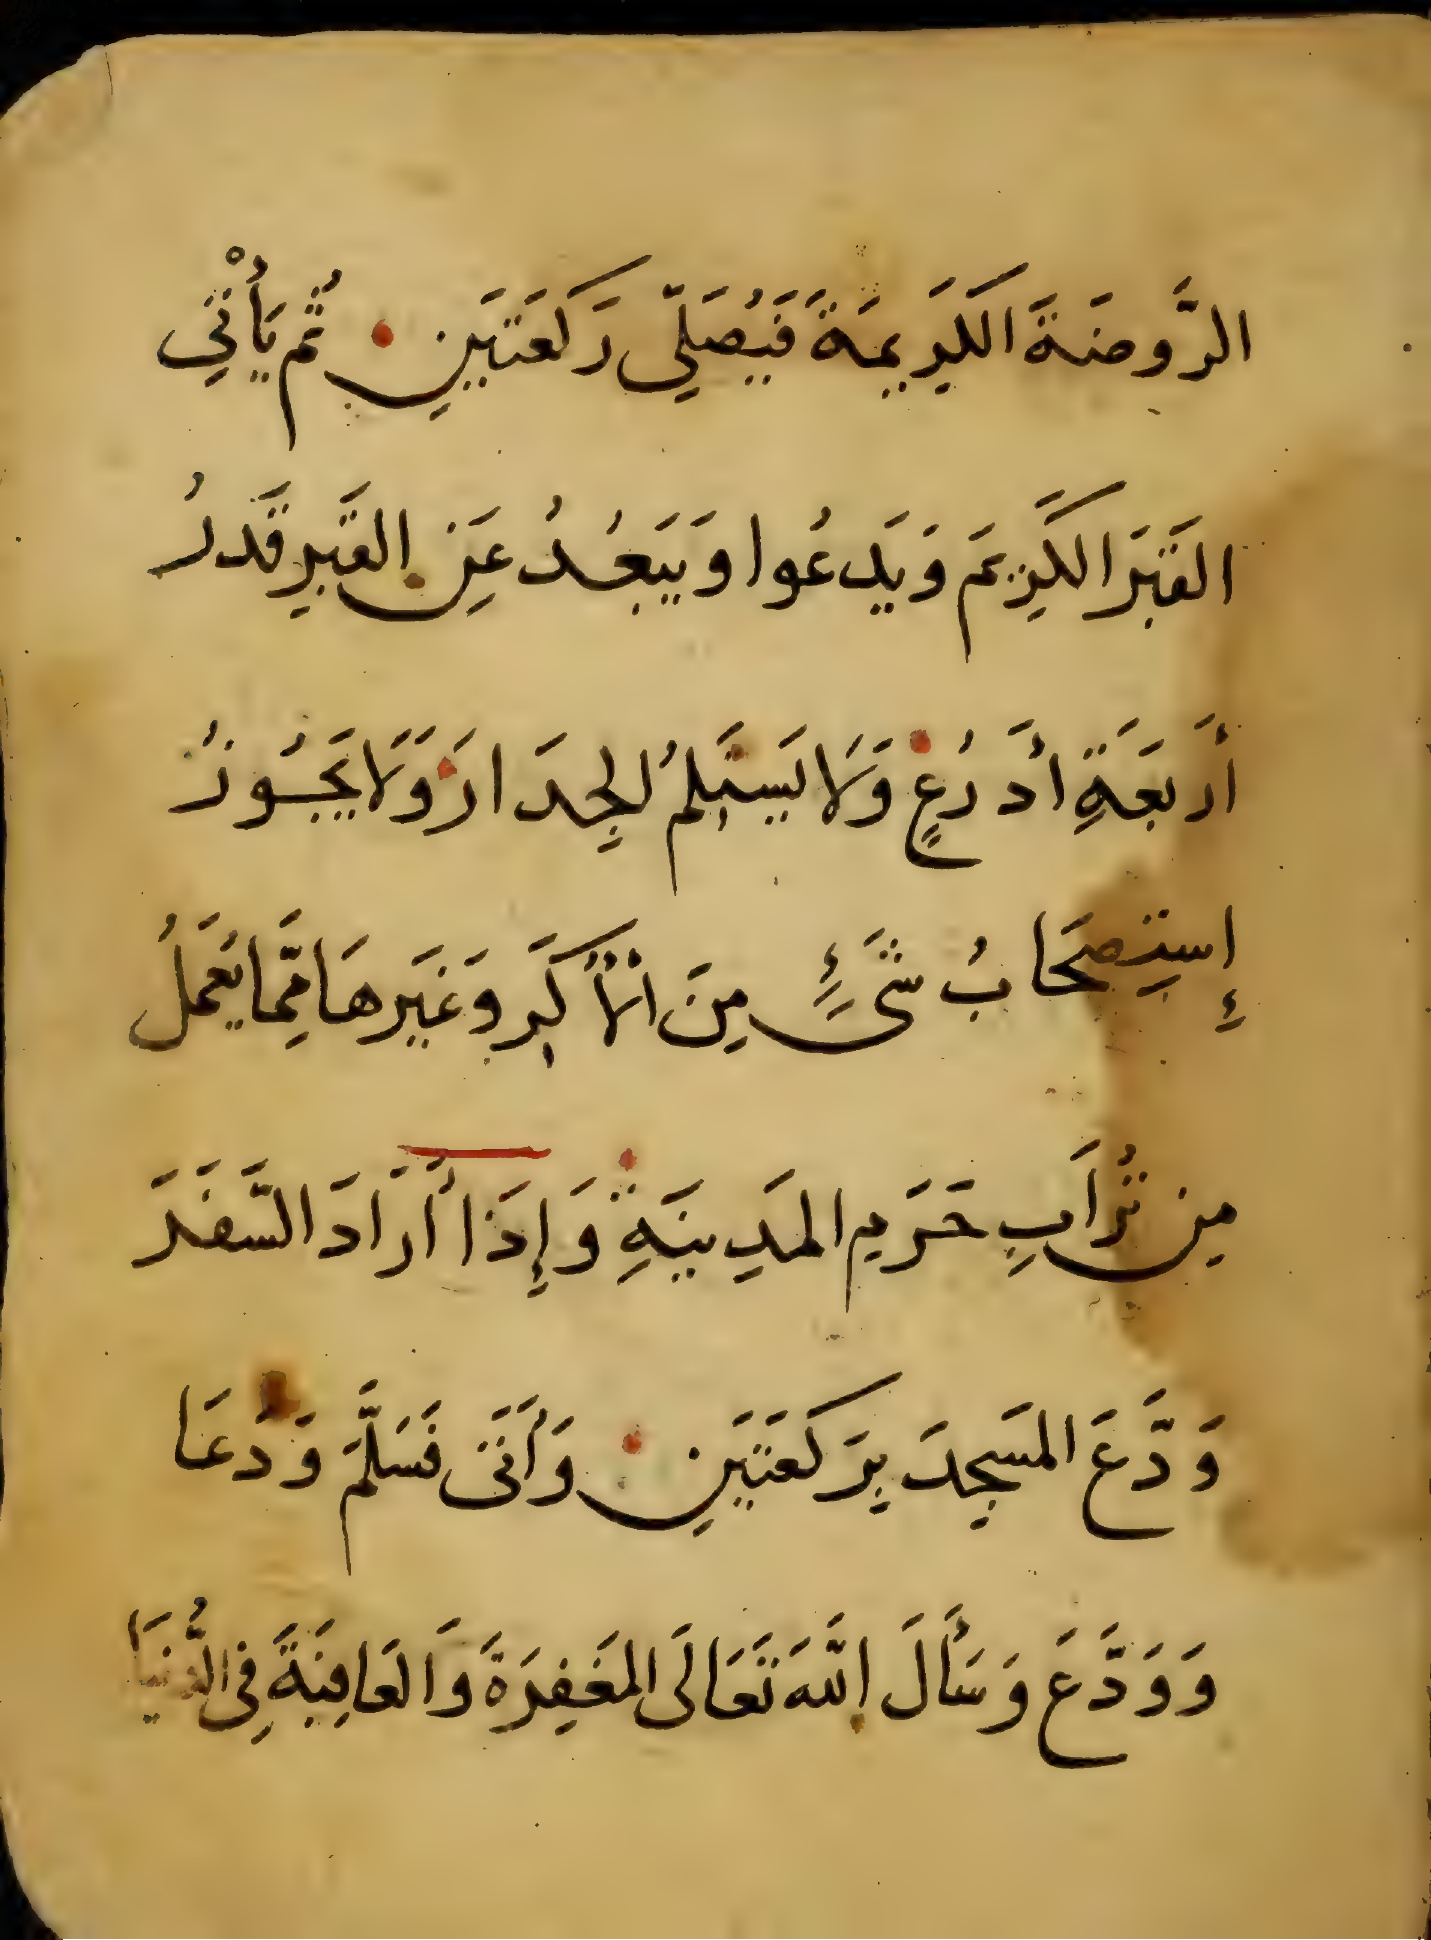 الرَّوضَةَ الكَرِيمَةَ فَيُصَلِّي رَكعَتَينِ ثُم يَأْتِي
القَبرَ الكَرِيمَ وَيَدعُوا وَيَبعُدُ عَنِ القَبرِ قَدرُ
أَربَعَةِ أَذرُعٍ وَلَا يَستَلِمُ الجِدَارَ وَلَا يَجُوزُ
إِستِصحَابُ شَيءٍ مِنَ الأُكَرِ وَغَيرِهَا مِمَّا يُعمَلُ
مِن تُرَابِ حَرَمِ المَدِينَةِ وَإِذَا أَرَادَ السَّفَرَ
وَدَّعَ المَسجِدَ بِرَكعَتَينِ وَأَتَى فَسَلَّمَ وَدَعَا
وَوَدَّعَ وَسَأَلَ اللَّهَ تَعَالَى المَغفِرَةَ وَالعَافِيَةَ فِي الدُّنيَا